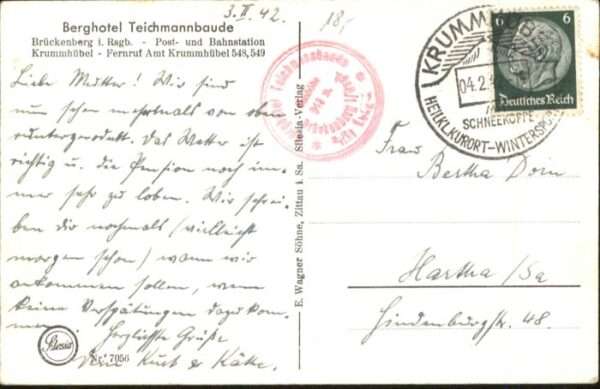 3. II. 42.
18,-
Berghotel Teichmannbaude
Brückenberg i. Rsgb. - Post- und Bahnstation
Krummhübel - Fernruf Amt Krummhübel 548, 549
Liebe Mutter! Wir sind
nun schon mehrmals von oben
runtergerodelt. Das Wetter ist
richtig u. die Pension noch im-
mer sehr zu loben. Wir schrei-
ben dir nochmals (vielleicht
morgen schon) wann wir
ankommen sollen, wenn
keine Verspätungen dazu kom-
men. Herzlichste Grüße
Kurt & Käthe.
Silesia
Nr. 7056
E. Wagner Söhne, Zittau i. Sa. Silesia-Verlag
Teichmannbaude
KRUMMHÜBEL
04.2.
SCHNEEKOPPE
HEILKLKURORT-WINTERSPO
6 6
Deutsches Reich
Frau
Bertha Dorn
Hartha /Sa
Hindenburgstr. 48.